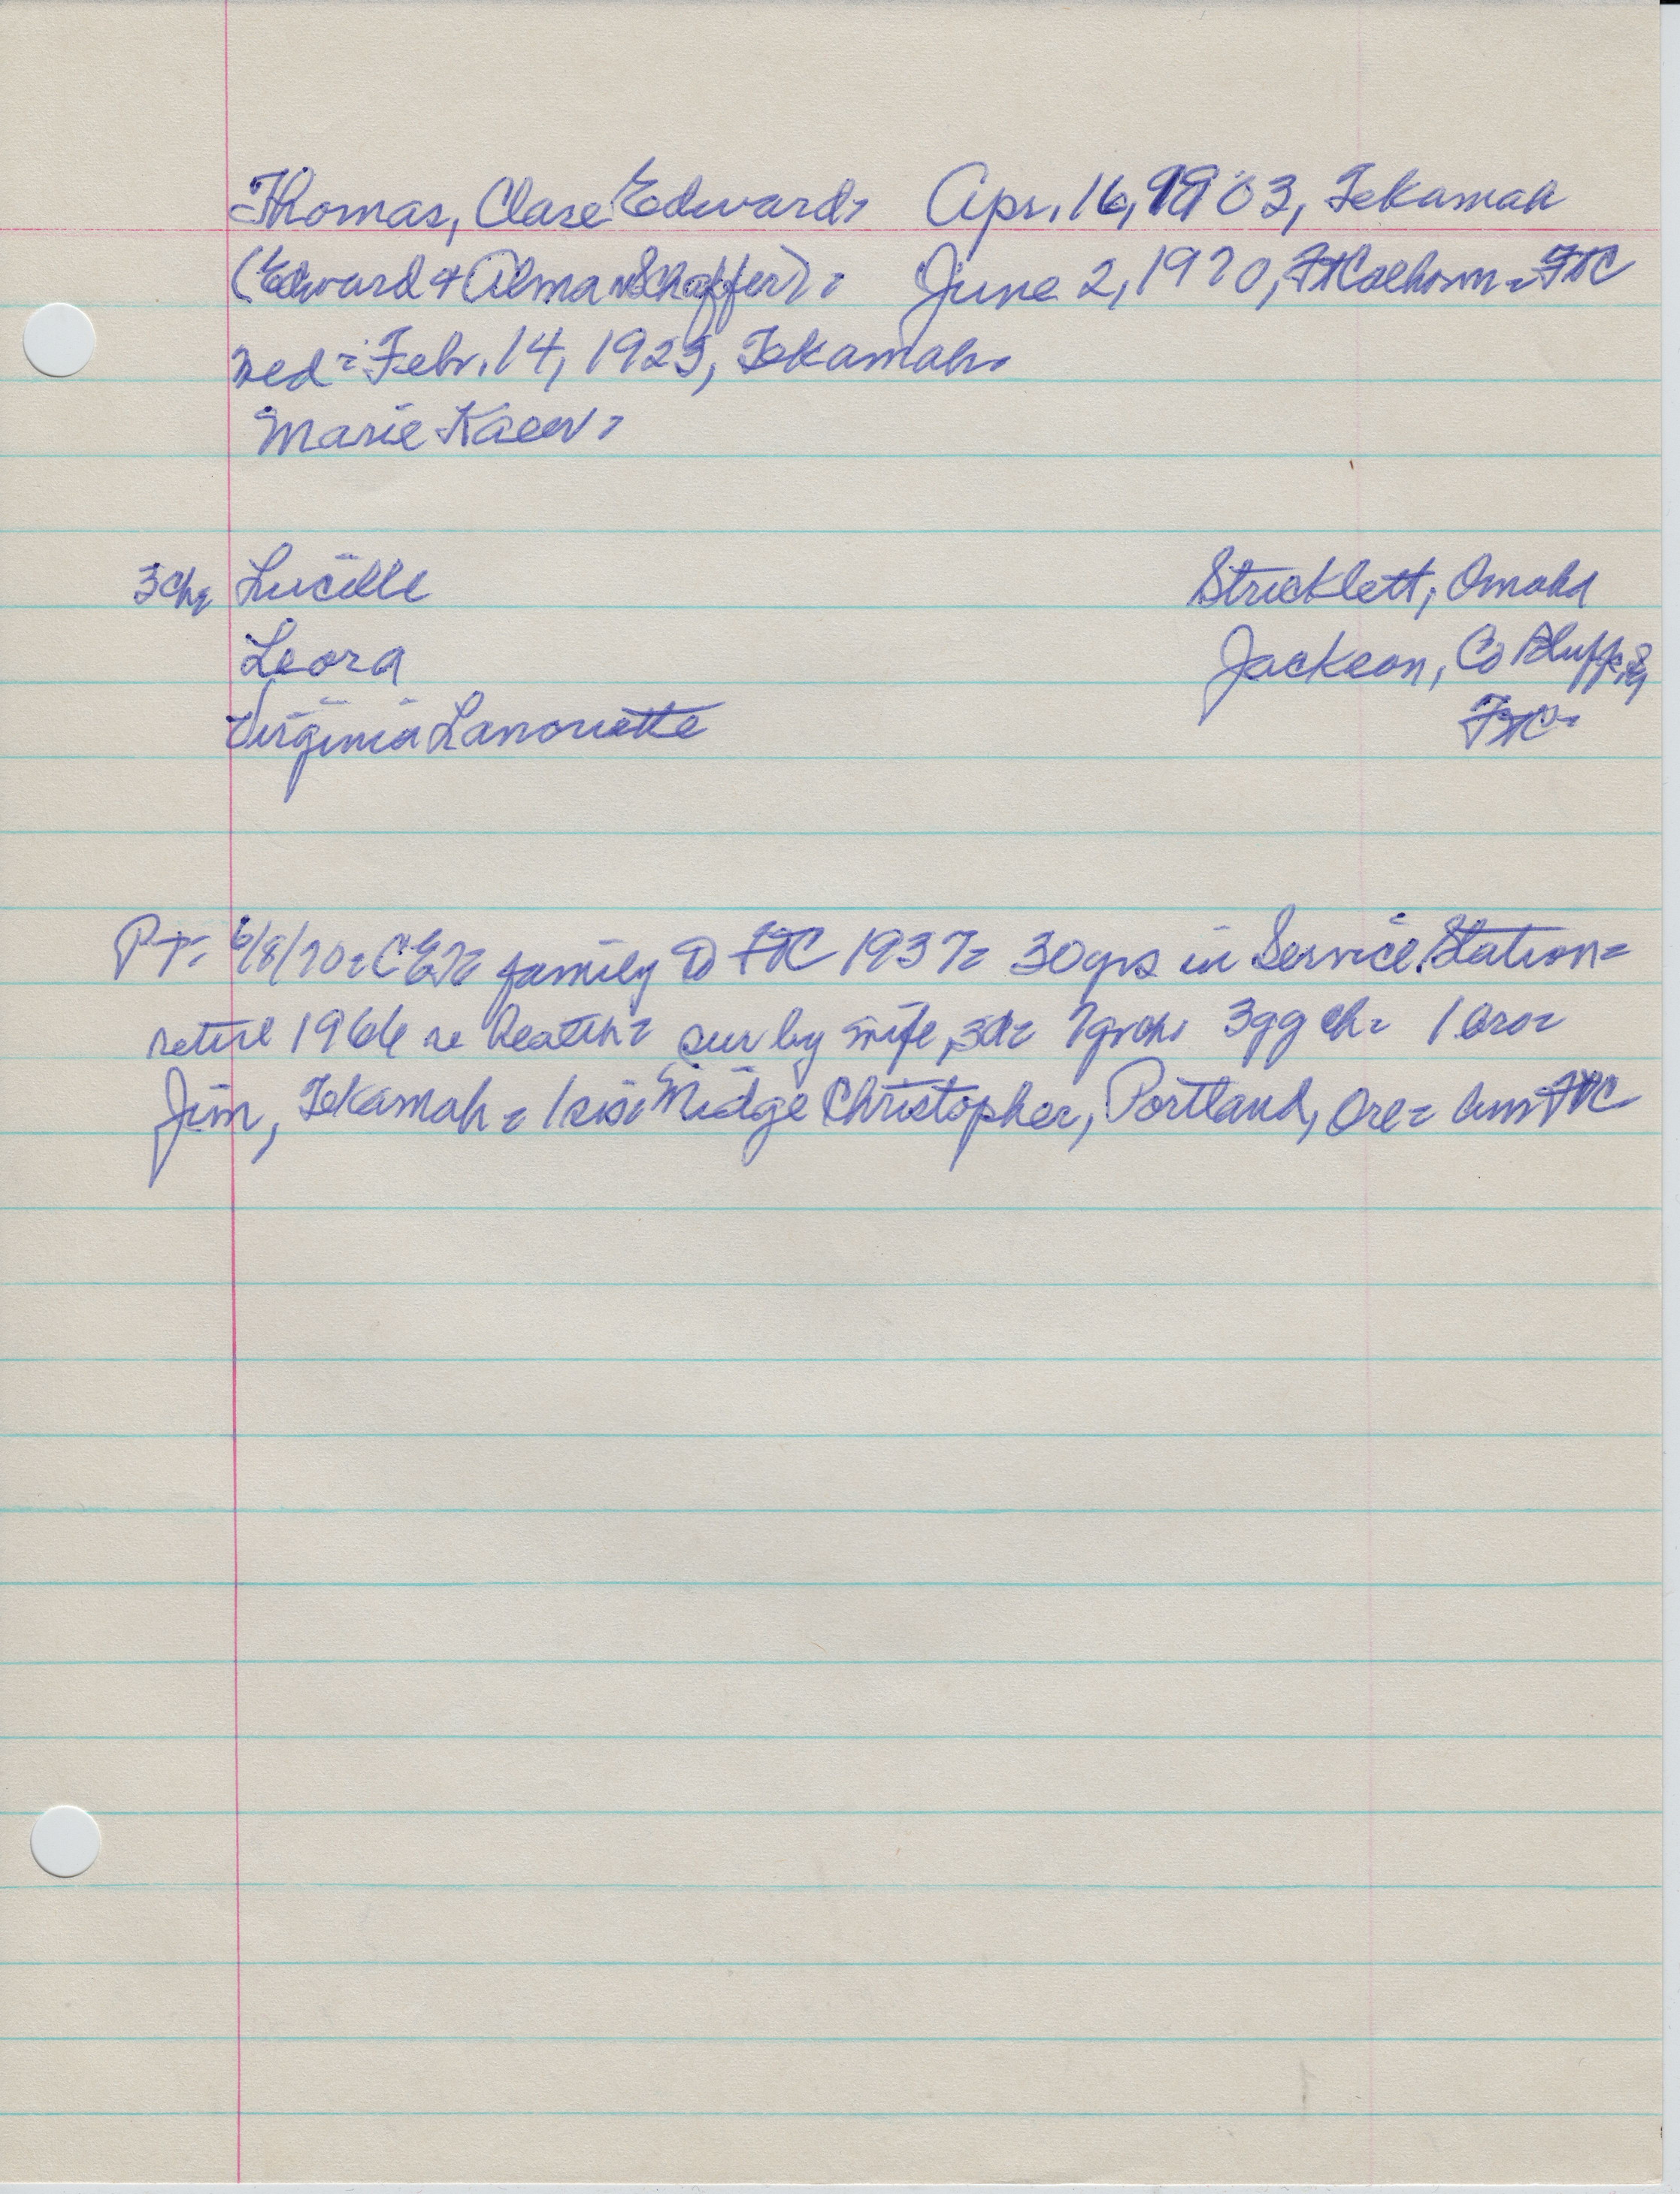 Thomas, Clare Edward, Apr. 16, 1903, Tekamah
(Edward & Alma Shaffer), June 2, 1970, Ft Calhoun = FTC
Wed = Febr. 14, 1925, Tekamah
Marie
3 ch, Lucille Stricklett, Omaha
Leora Jackson, Co Bluffs,
Virginia Lamoriette FTC
PT. 6/8/70 = CET = family to FTC 1937 = 30 yrs in Service Station =
retire 1966 re health = sur by wife, 3d = 7 gr ch, 3gg ch = 1 bro =
Jim, Tekamah = 1 sis = Midge Christopher, Portland, Ore = FTC